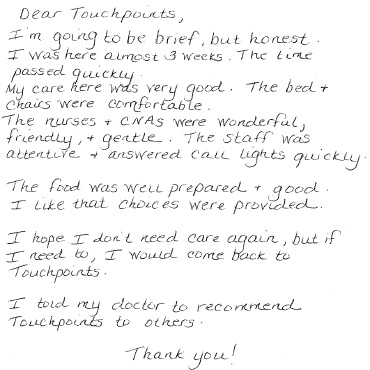 Dear Touchpoints,
I'm going to be brief, but honest.
I was here almost 3 weeks. The time
passed quickly.
My care here was very good. The bed +
chairs were comfortable.
The nurses + CNAs were wonderful,
friendly, + gentle. The staff was
attentive + answered call lights quickly.
The food was well prepared + good.
I like that choices were provided.
I hope I don't need care again, but if
I need to, I would come back to
Touchpoints.
I told my doctor to recommend
Touchpoints to others.
Thank you!